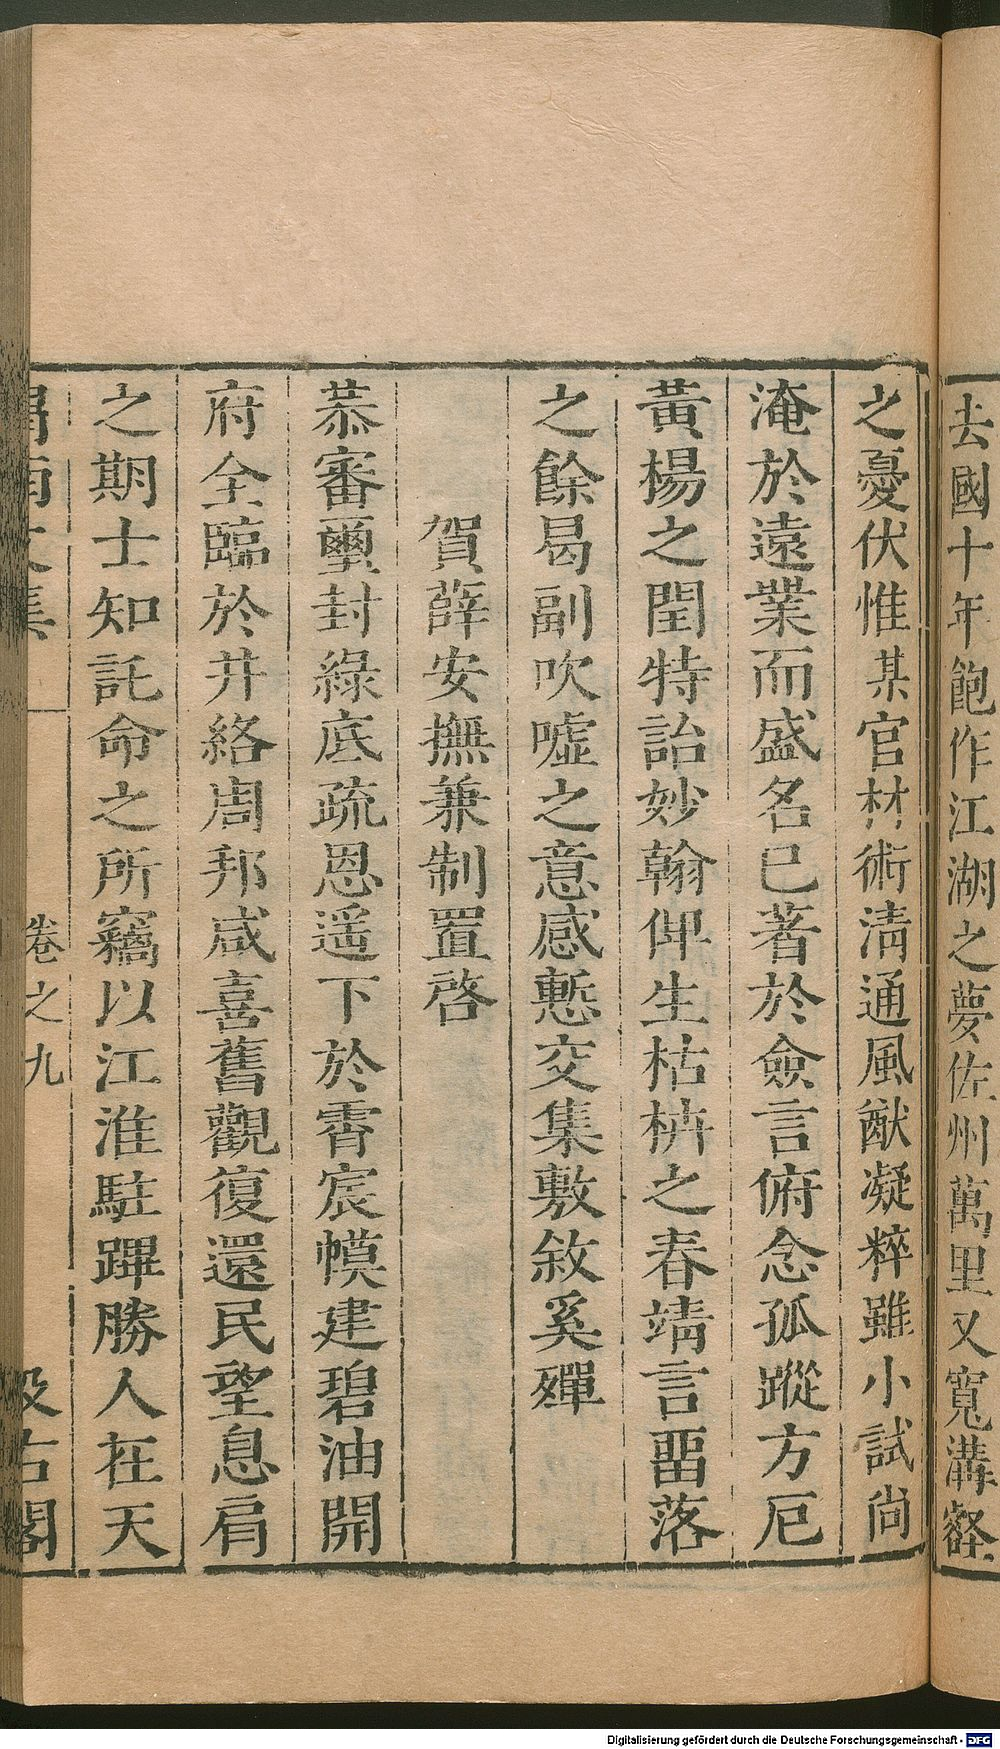 去國十年飽作江湖之夢佐州萬里又寬溝壑
之憂伏惟某官材術淸通風猷凝粹雖小試尙
淹於遠業而盛名已著於僉言俯念孤蹤方厄
黃楊之閏特詒妙翰俾生枯枿之春靖言畱落
之餘曷副吹噓之意感慙交集敷敘奚殫
賀薛安撫兼制置啓
恭審璽封綠底疏恩遥下於霄宸幙建碧油開
府全臨於井絡周邦咸喜舊觀復還民望息肩
之期士知託命之所竊以江淮駐蹕勝人在天
渭南文集 卷之九 汲古閣
Digitalisierung gefördert durch die Deutsche Forschungsgemeinschaft - DFG